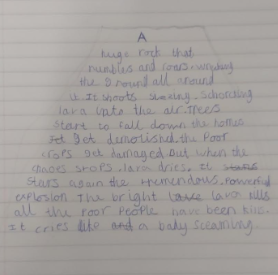 A
huge rock that
rumbles and roars
the ground all around
it. It shoots scorching
lava into the air. trees
start to fall down the homes
get demolished. the Poor
crops get damaged But when the
stops. lava dries. it
stars again the tremendous. Powerful
explosion The bright lava kills
all the Poor People have been
It cries like a baby screaming.